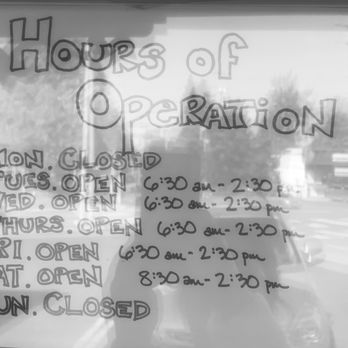 Hours of
Operation
MON. CLOSED
TUES. OPEN 6:30 am - 2:30 pm
WED. OPEN 6:30 am - 2:30 pm
THURS. OPEN 6:30 am - 2:30 pm
FRI. OPEN 6:30 am - 2:30 pm
SAT. OPEN 8:30 am - 2:30 pm
SUN. CLOSED